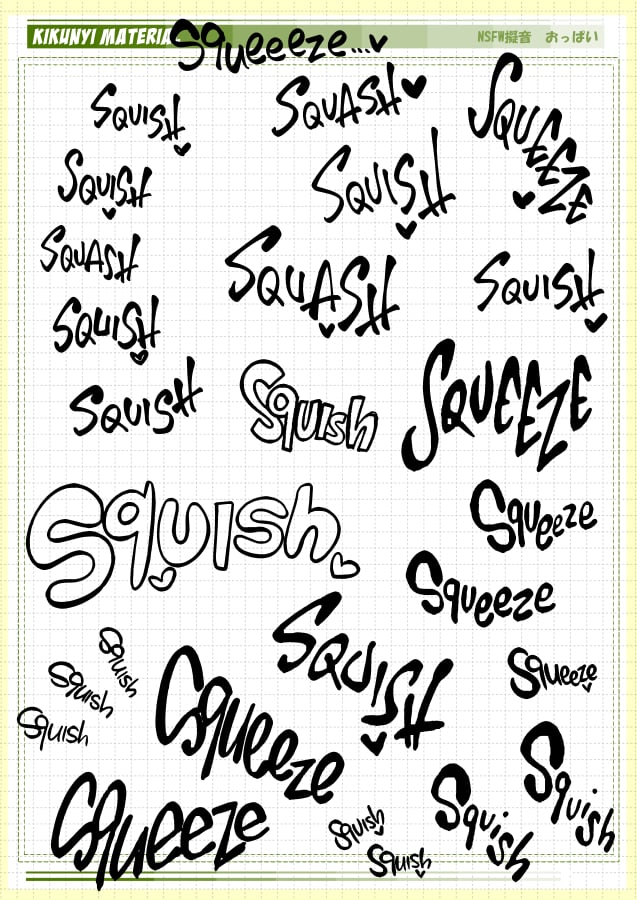 KIKUNYI MATERIA
Squeeeze...
NSFW擬音 おっぱい
SQUISH
SQUASH
SQUEEZE
SQUISH
SQUISH
SQUASH
SQUASH
SQUISH
SQUISH
SQUISH
Squish
SQUEEZE
Squish
Squeeze
Squeeze
SQUISH
Squish
Squish
Squish
Squeeze
Squeeze
Squeeze
Squish
Squish
Squish
Squish